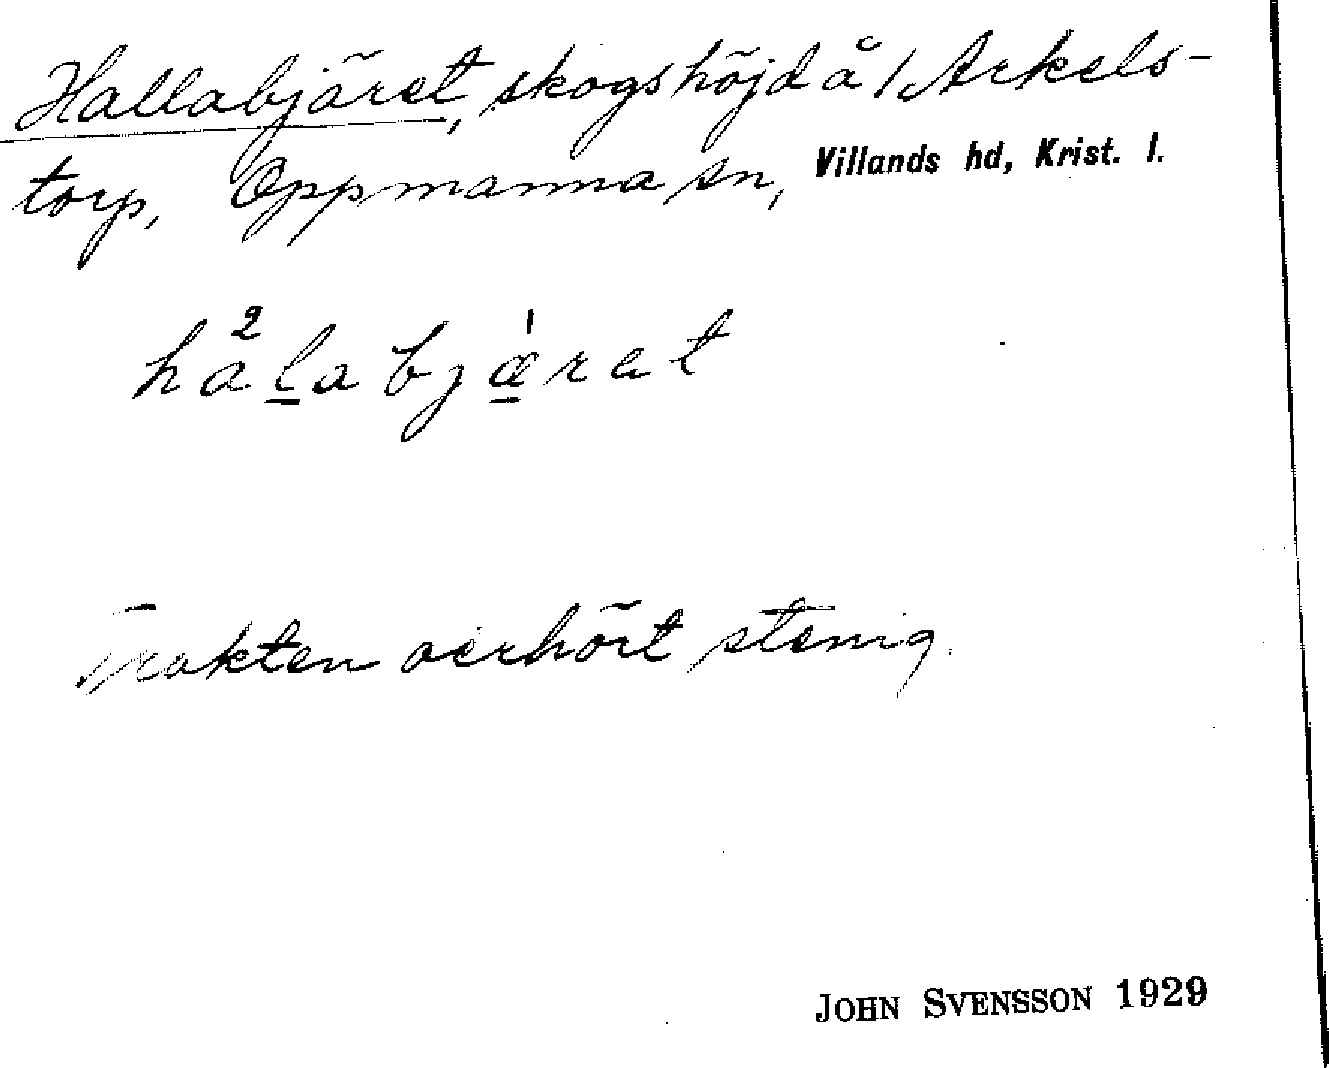 Hallabjäret, skogshöjd å 1 Arkels-
torp, Oppmanna sn, Villands hd, Krist. l.
hålabjærat
Trakten oerhört stenig.
JOHN SVENSSON 1929